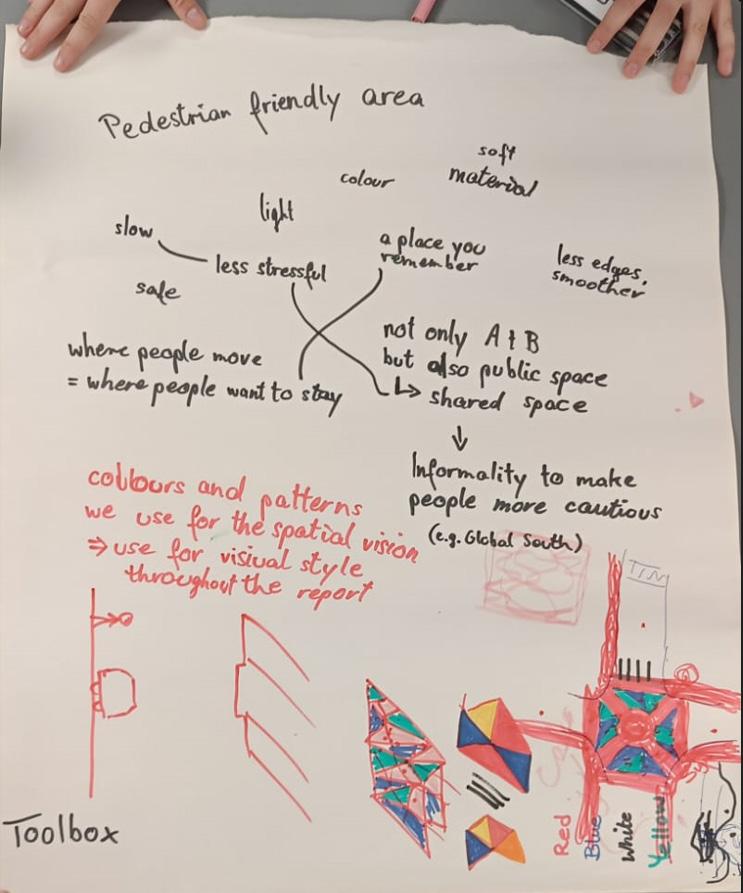 Pedestrian friendly area
soft
material
colour
light
slow
less stressful
a place you
remember
less edges,
smoother
safe
where people move
= where people want to stay
not only A + B
but also public space
↳ shared space
↓
Informality to make
people more cautious
(e.g. Global South)
collours and patterns
we use for the spatial vision
⇒ use for visival style
throughout the report
Toolbox
Red
Blue
White
Yellow